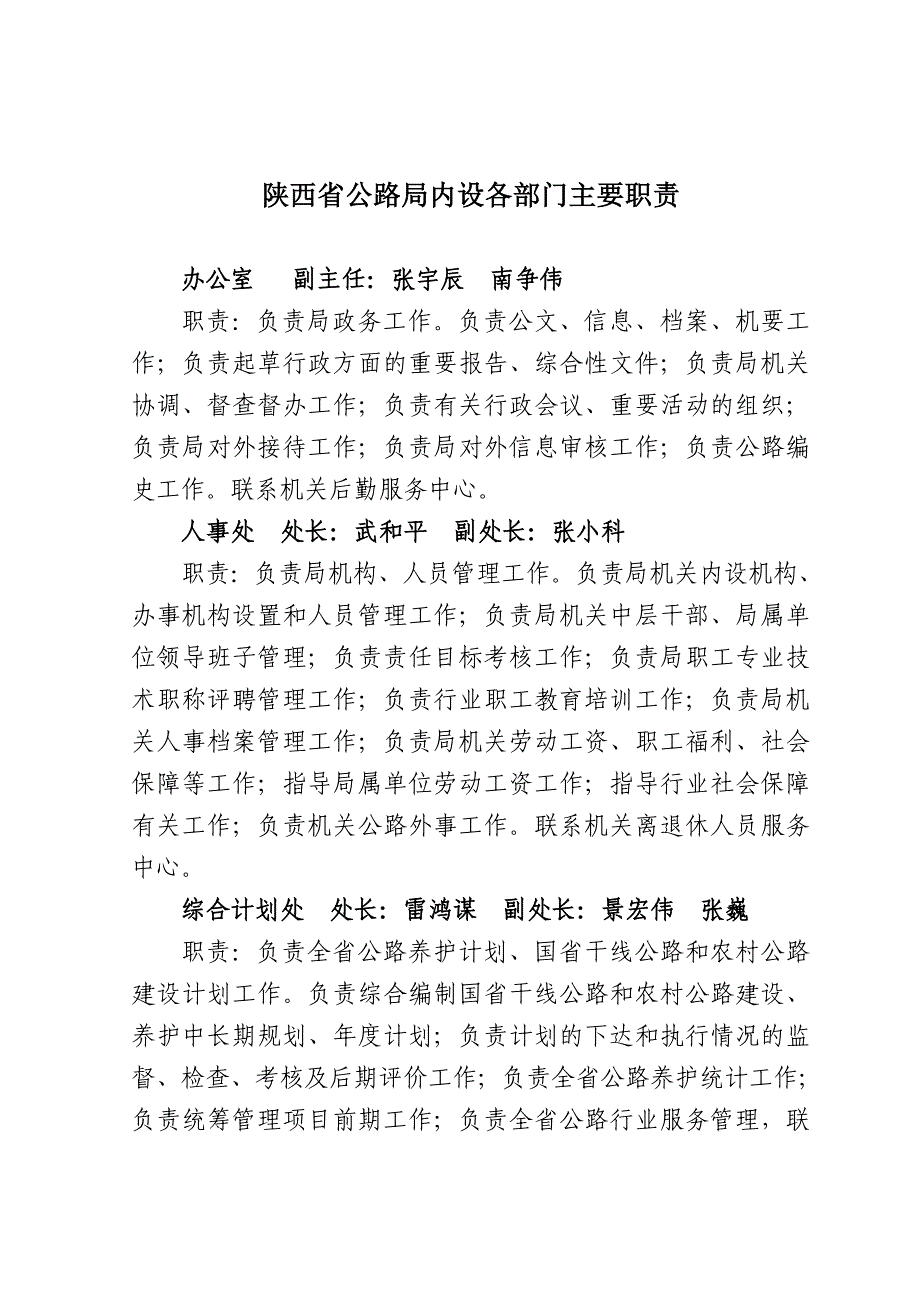 陕西省公路局内设各部门主要职责
办公室 副主任：张宇辰 南争伟
职责：负责局政务工作。负责公文、信息、档案、机要工
作；负责起草行政方面的重要报告、综合性文件；负责局机关
协调、督查督办工作；负责有关行政会议、重要活动的组织；
负责局对外接待工作；负责局对外信息审核工作；负责公路编
史工作。联系机关后勤服务中心。
人事处 处长：武和平 副处长：张小科
职责：负责局机构、人员管理工作。负责局机关内设机构、
办事机构设置和人员管理工作；负责局机关中层干部、局属单
位领导班子管理；负责责任目标考核工作；负责局职工专业技
术职称评聘管理工作；负责行业职工教育培训工作；负责局机
关人事档案管理工作；负责局机关劳动工资、职工福利、社会
保障等工作；指导局属单位劳动工资工作；指导行业社会保障
有关工作；负责机关公路外事工作。联系机关离退休人员服务
中心。
综合计划处 处长：雷鸿谋 副处长：景宏伟 张巍
职责：负责全省公路养护计划、国省干线公路和农村公路
建设计划工作。负责综合编制国省干线公路和农村公路建设、
养护中长期规划、年度计划；负责计划的下达和执行情况的监
督、检查、考核及后期评价工作；负责全省公路养护统计工作；
负责统筹管理项目前期工作；负责全省公路行业服务管理，联